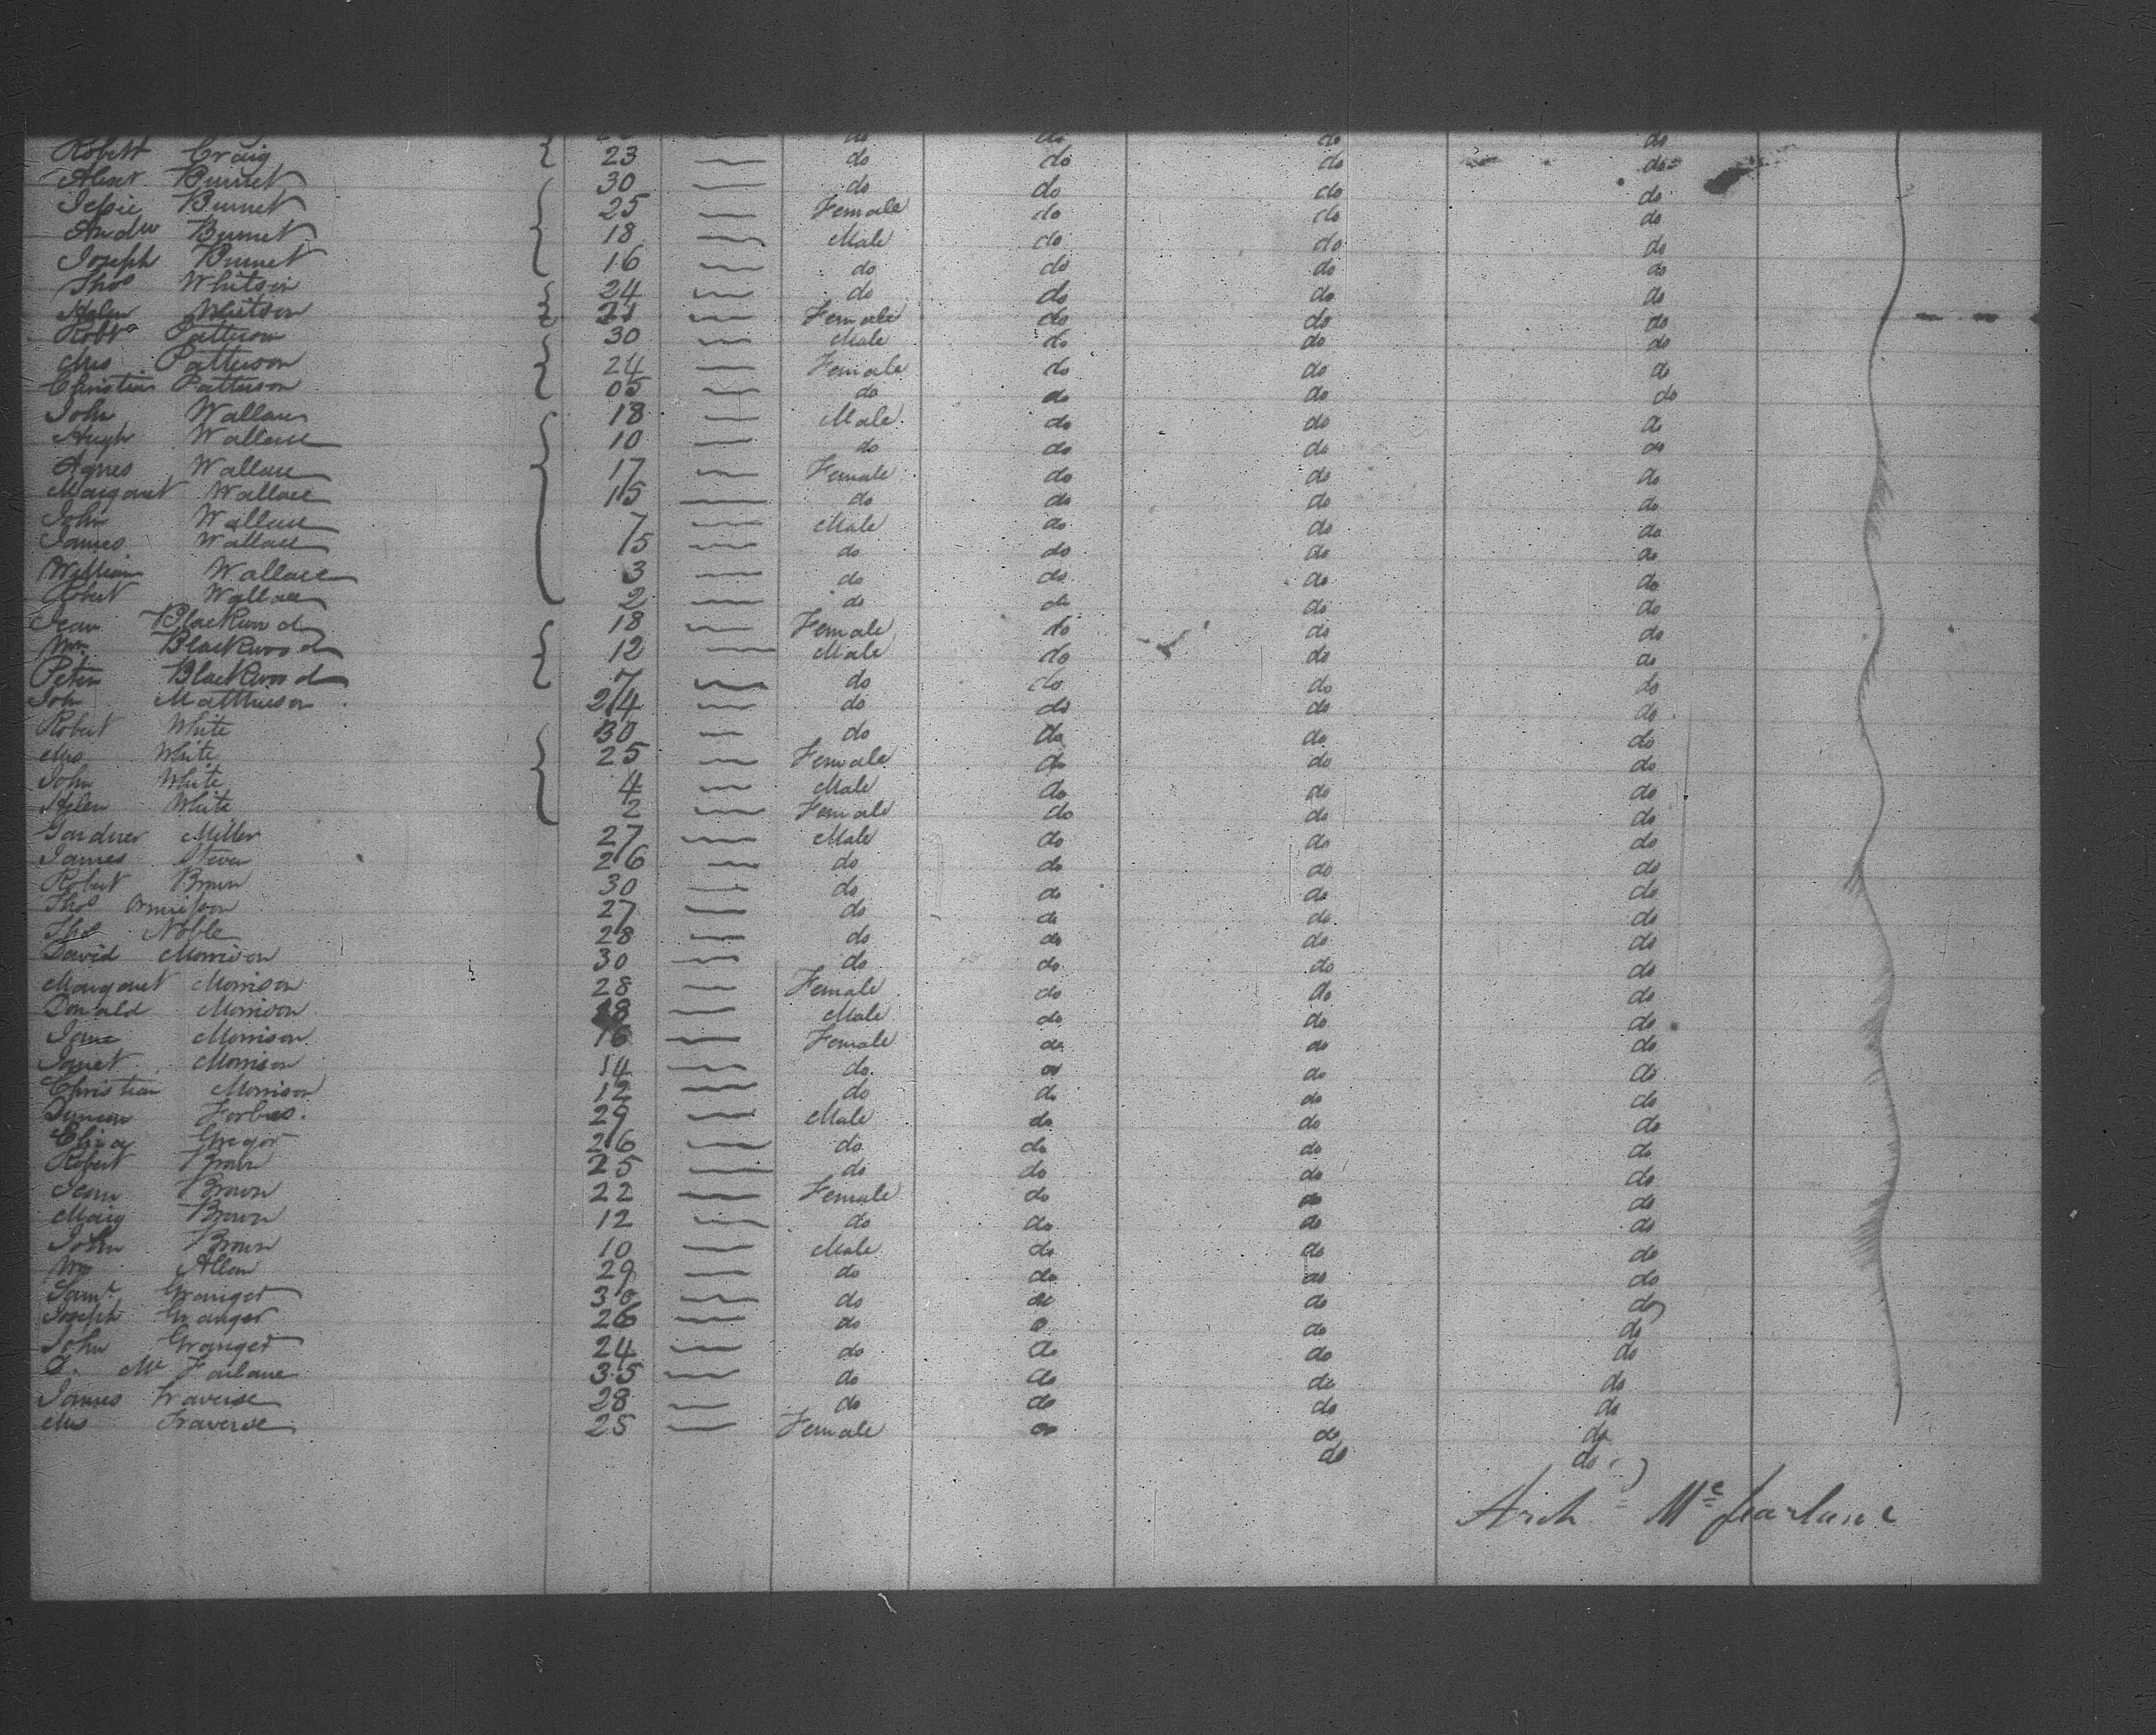 do do do do
Robert Craig 23 do do do do
Alexr Burnet 30 do do do do
Jessie Burnet 25 Female do do do
Andw Burnet 18 Male do do do
Joseph Burnet 16 do do do do
Thos Whitson 24 do do do do
Helen Whitson 21 Female do do do
Robt Patterson 30 Male do do do
Mrs Patterson 24 Female do do do
Christian Patterson 05 do do do do
John Wallace 18 Male do do do
Hugh Wallace 10 do do do do
Agnes Wallace 17 Female do do do
Margaret Wallace 15 do do do do
John Wallace 7 Male do do do
James Wallace 5 do do do do
William Wallace 3 do do do do
Robert Wallace 2 do do do do
Jean Blackwood 18 Female do do do
Wm Blackwood 12 Male do do do
Peter Blackwood 7 do do do do
John Matthieson 24 do do do do
Robert White 30 do do do do
Mrs White 25 Female do do do
John White 4 Male do do do
Helen White 2 Female do do do
Gardner Miller 27 Male do do do
James Steven 26 do do do do
Robert Brown 30 do do do do
Thos 27 do do do do
Thos Noble 28 do do do do
David Morrison 30 do do do do
Margaret Morrison 28 Female do do do
Donald Morrison 18 Male do do do
Jane Morrison 16 Female do do do
Janet Morrison 14 do do do do
Christian Morrison 12 do do do do
Duncan Forbes. 29 Male do do do
Gregor 26 do do do do
Robert Brown 25 do do do do
Jean Brown 22 Female do do do
Marg Brown 12 do do do do
John Brown 10 Male do do do
Wm Allan 29 do do do do
Saml Granger 30 do do do do
Joseph Granger 26 do do do do
John Granger 24 do do do do
D. Mc Farlane 35 do do do do
James Traverse 28 do do do do
Mrs Traverse 25 Female do do do
do do
Archd Mcfarlane